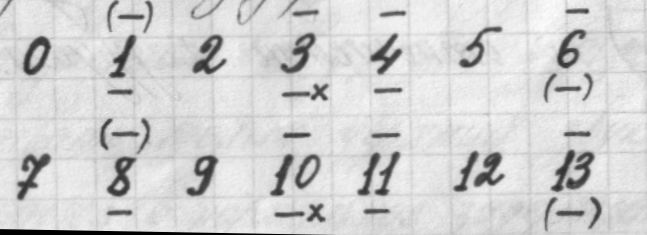 (—) — — —
0 1 2 3 4 5 6
— —× — (—)
(—) — — —
7 8 9 10 11 12 13
— —× — (—)